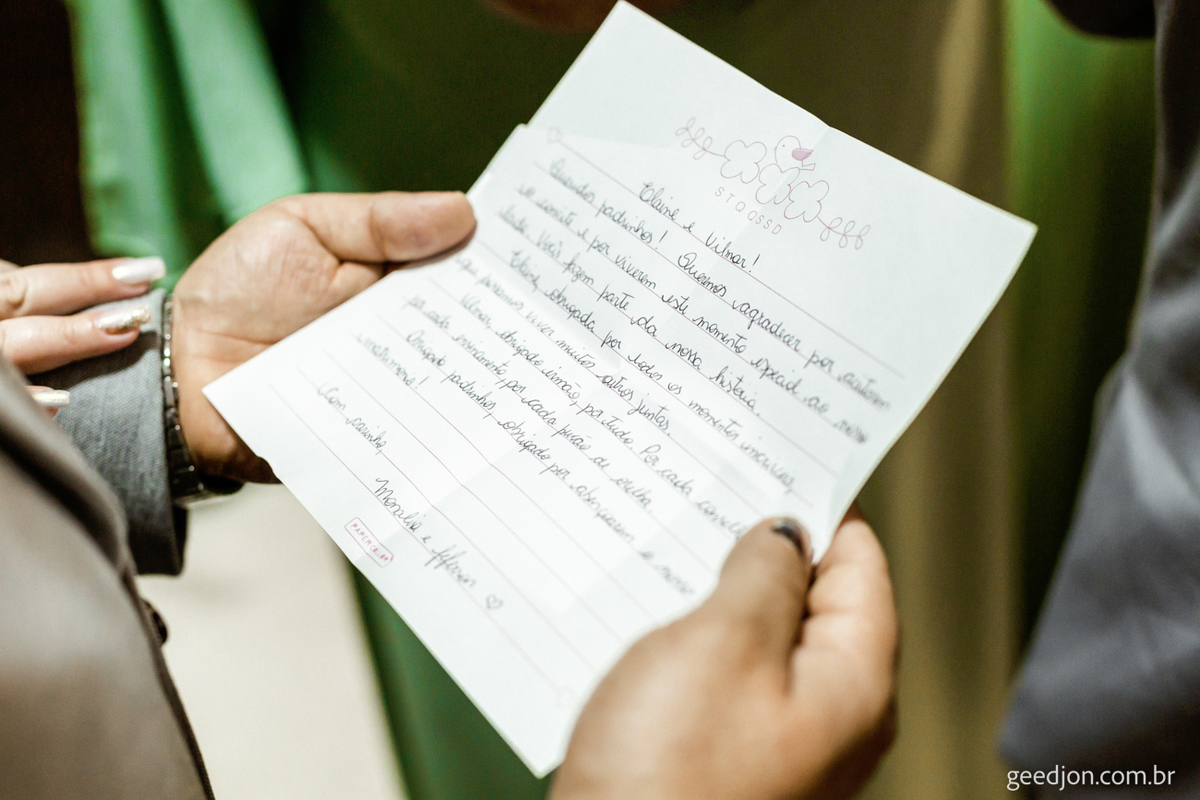 STQQSSD
Elaine e Vilmar!
Queridos padrinhos! Queremos agradecer por aceitarem
o convite e por viverem este momento especial ao nosso
lado. Vocês fazem parte da nossa história.
Elaine, obrigada por todos os momentos incríveis,
que possamos viver muitos outros juntas.
Vilmar, obrigado irmão, por tudo. Por cada conselho
por cada ensinamento, por cada puxão de orelha.
Obrigado padrinhos, obrigado por abençoarem o nosso
Com carinho,
e
geedjon.com.br